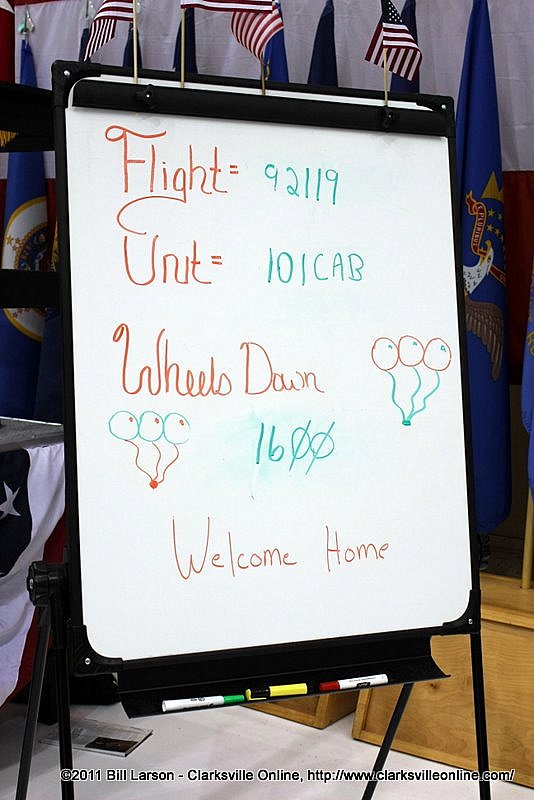 Flight= 92119
Unit= 101CAB
Wheels Down
1600
Welcome Home
©2011 Bill Larson - Clarksville Online, http://www.clarksvilleonline.com/